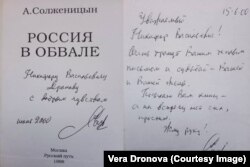 А. Солженицын
РОССИЯ
В ОБВАЛЕ
Никандру Васильевичу
с добрым чувством
июнь 2000
Москва
Русский путь
1998
15.6.00
Уважаемый
Никандр Васильевич!
Очень тронут Вашим
письмом и судьбой – Вашей
и Вашей жены.
Вам книгу –
а на встречу нет сил,
простите.
Жму руку!
Vera Dronova (Courtesy Image)